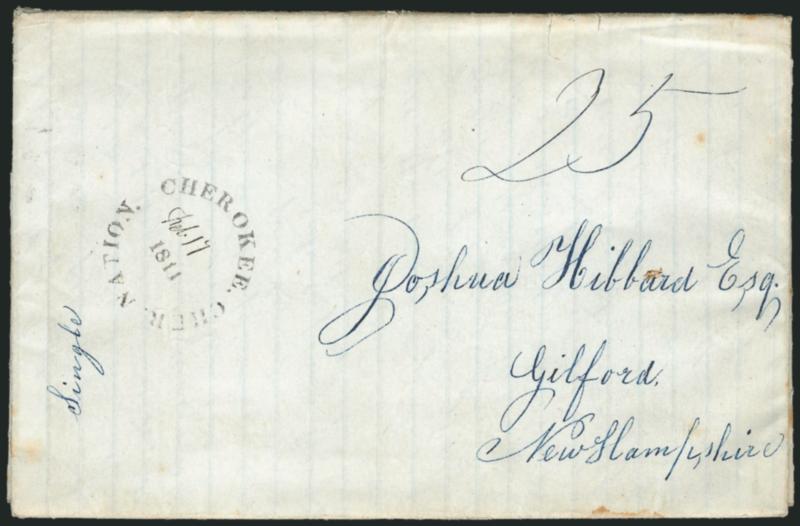 25
CHEROKEE. CHER. NATION.
Feb. 17
1841
Joshua Hibbard Esq.
Gilford.
New Hampshire
Single